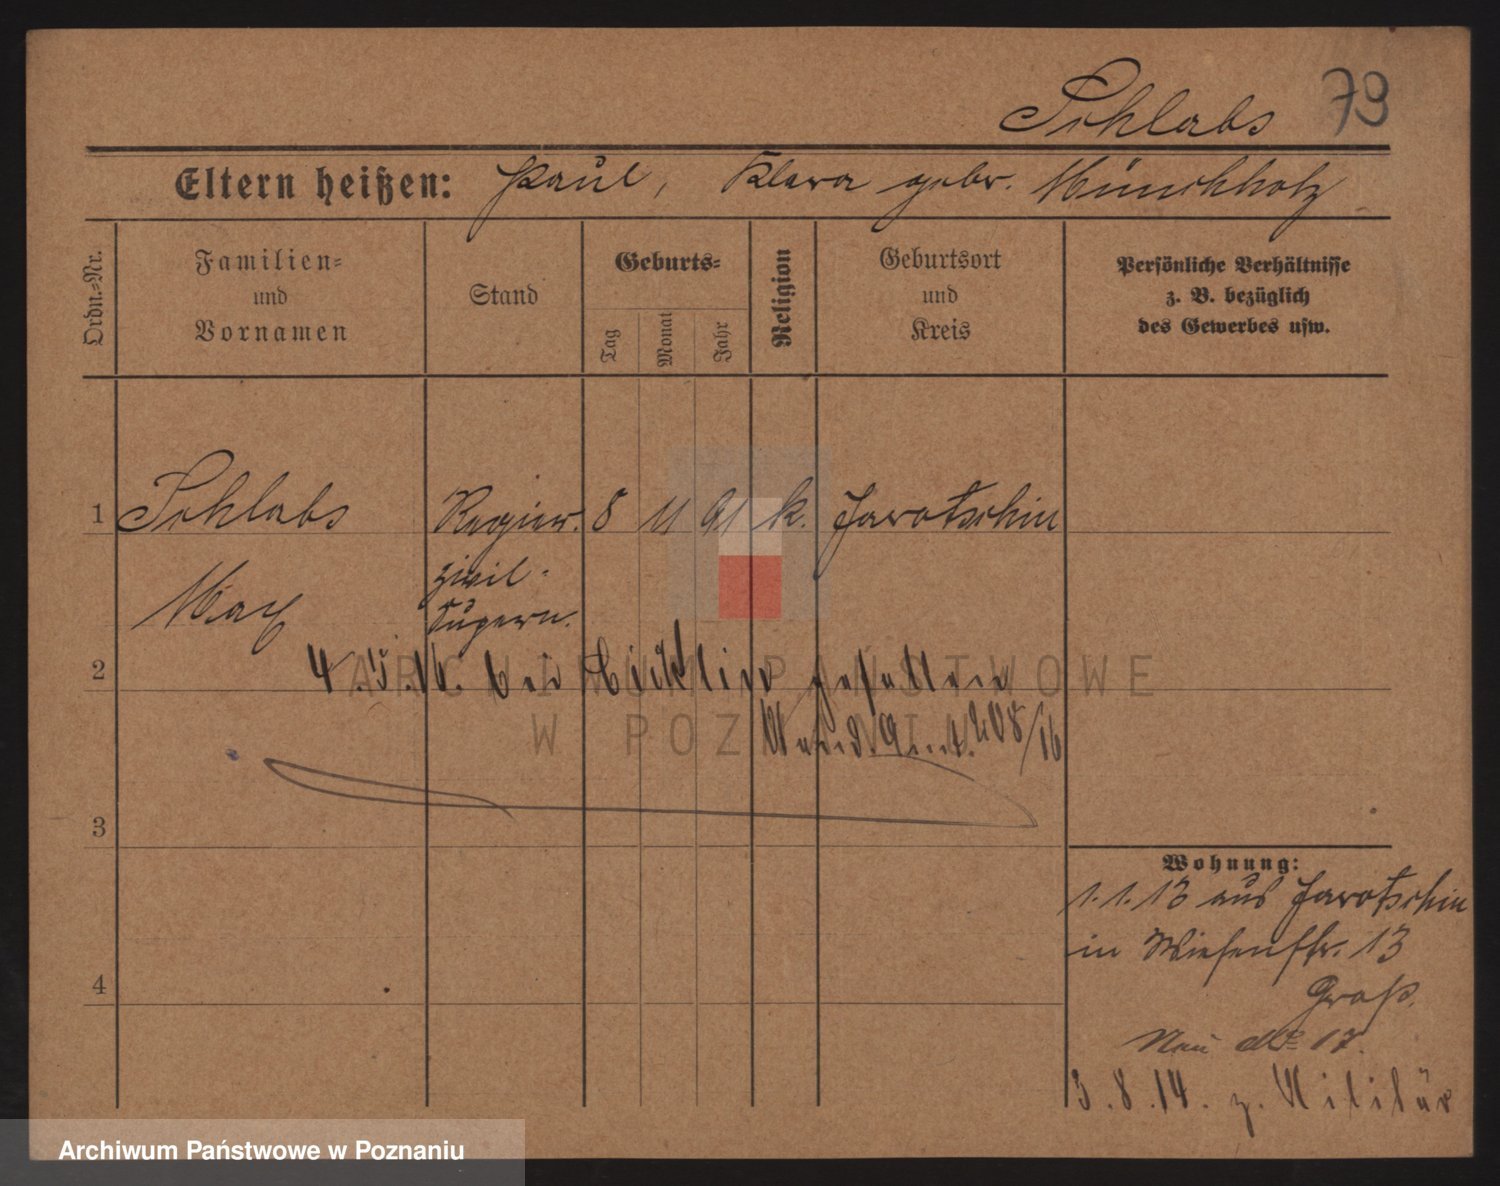 Schlabs 79
Eltern heißen: Paul, Klara gebr. Münchholz
Ordn.-Nr.
Familien-
und
Vornamen
Stand
Geburts-
Tag
Monat
Jahr
Religion
Geburtsort
und
Kreis
Persönliche Verhältnisse
z. B. bezüglich
des Gewerbes usw.
1 Schlabs Regier. 8 11 91 k. Jarotschin
zivil-
Max Supern.
2 4.5.16. bei gefallen
ARCHIWUM PAŃSTWOWE
W POZNANIU
408/16
3
4
Wohnung:
1.1.13 aus Jarotschin
in Wiesenstr. 13
Groß.
Neu № 17.
3.8.14. z. Militär
Archiwum Państwowe w Poznaniu